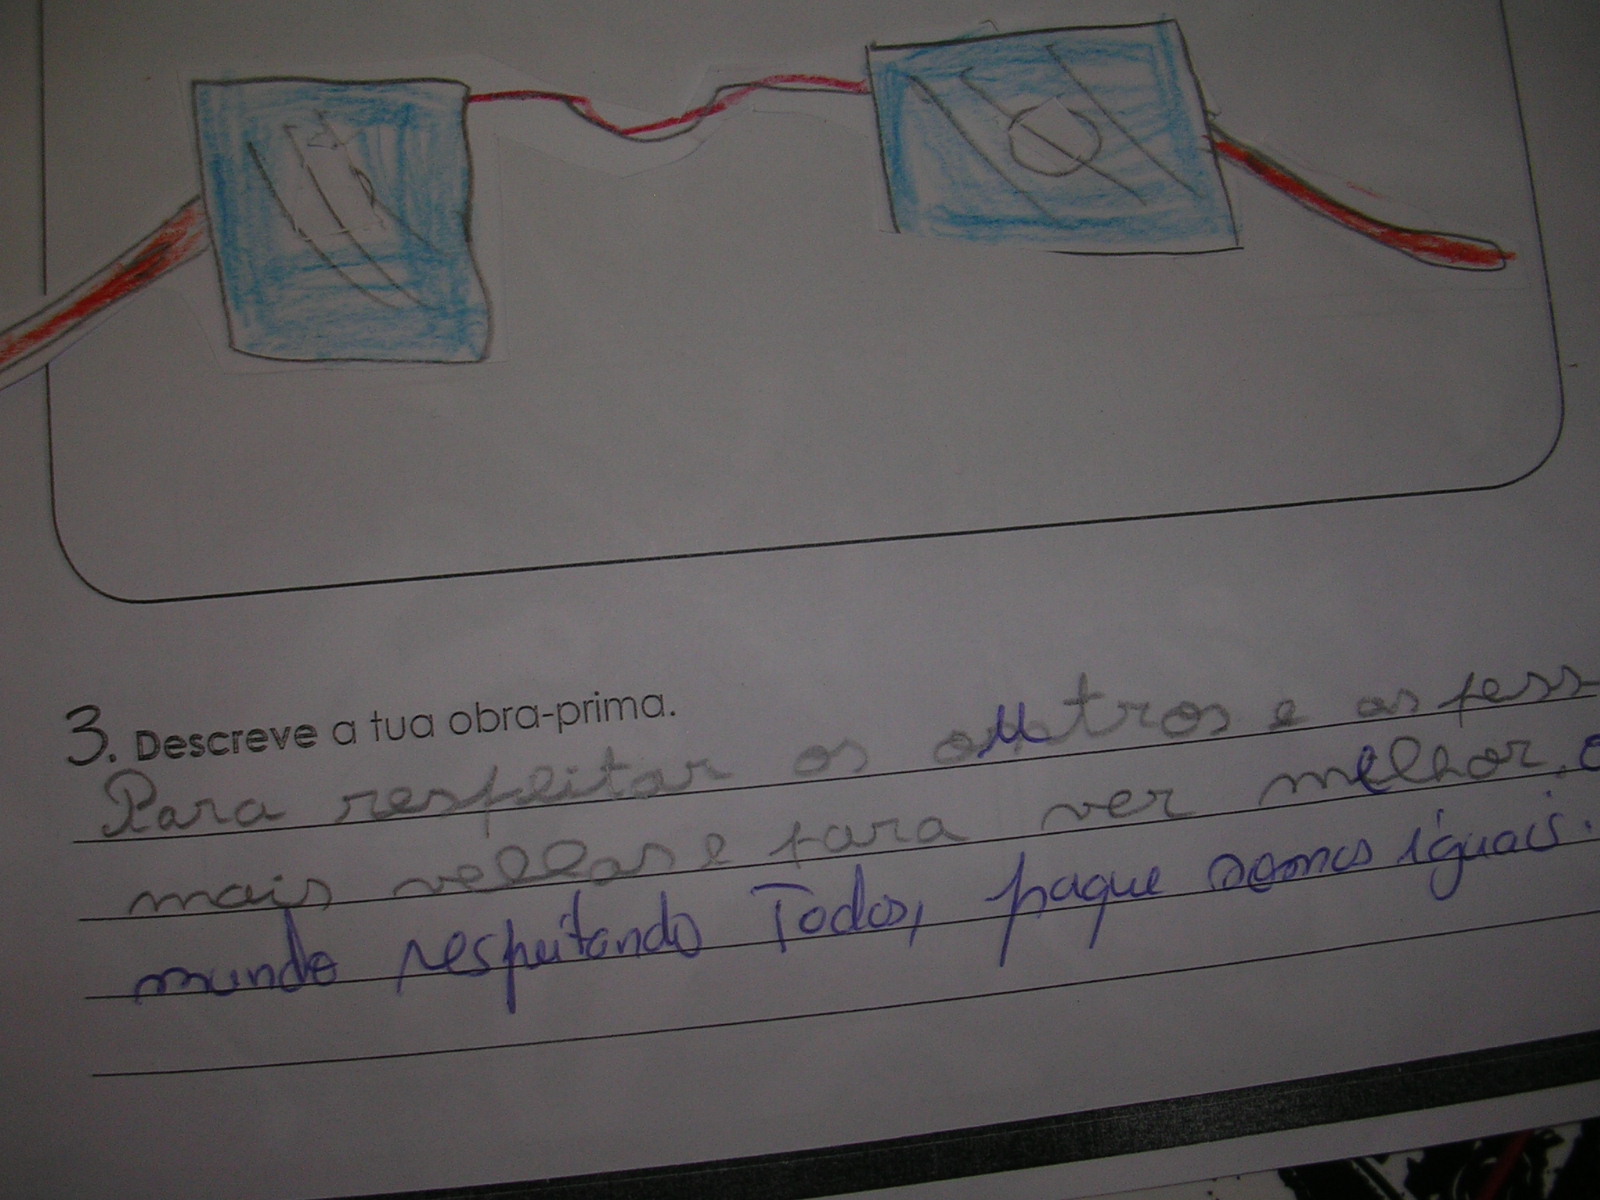 3. Descreve a tua obra-prima.
Para respeitar os outros e as pess
mais vellas e para ver melhor. o
mundo respeitando Todos, paque somos iguais.